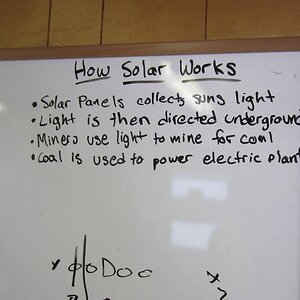 How Solar Works
• Solar Panels collects suns light
• Light is then directed underground
• Miners use light to mine for coal
• Coal is used to power electric plant